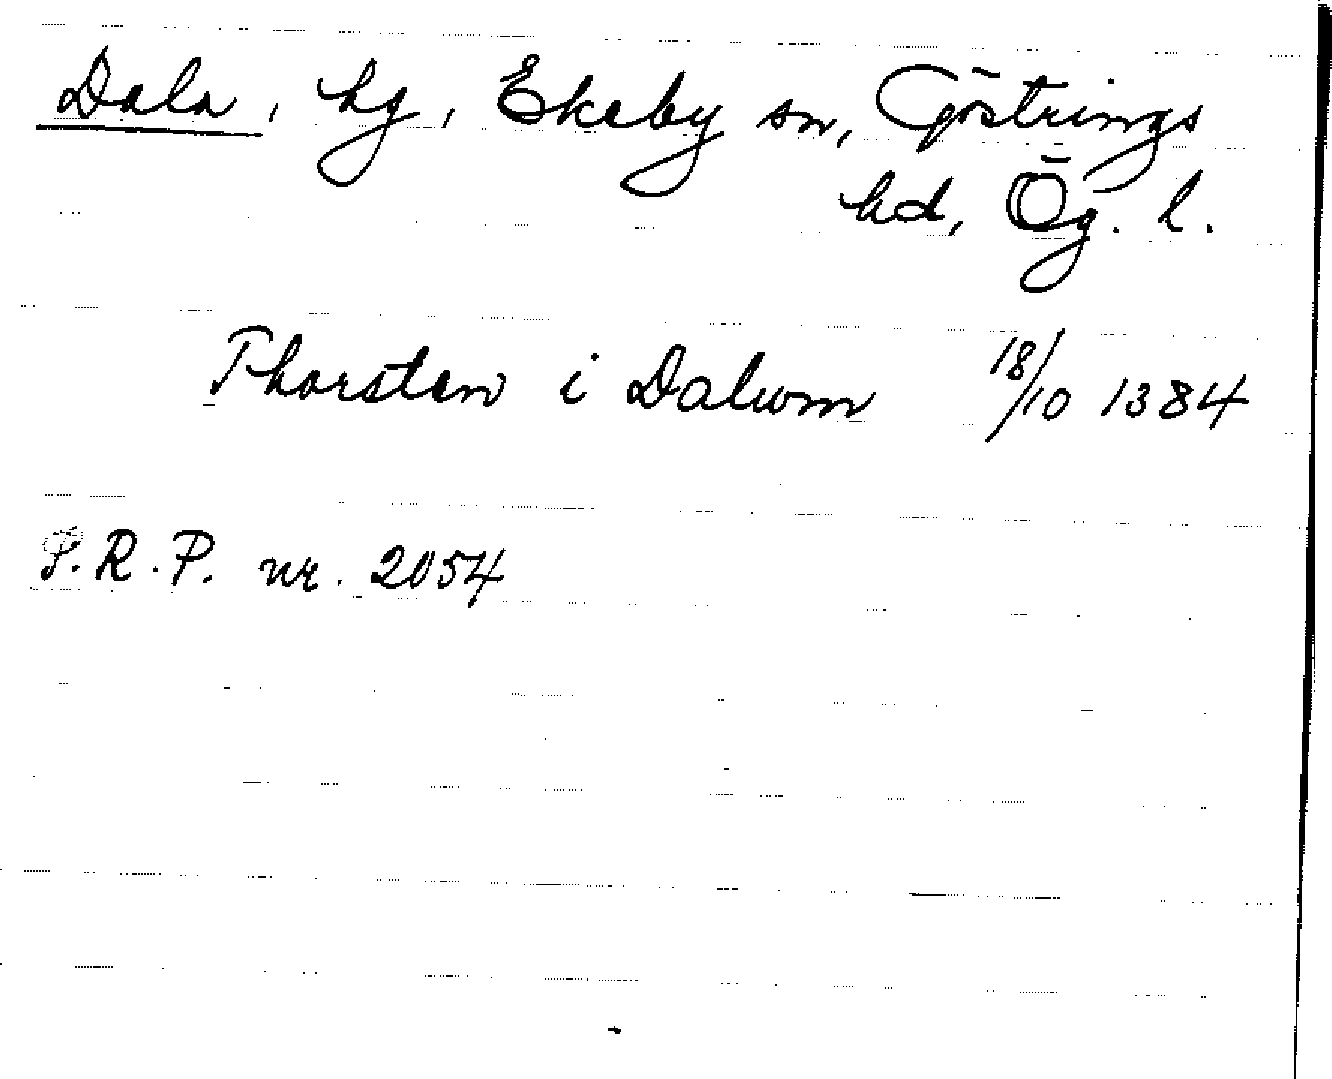 Dala, hg, Ekeby sn, Göstrings
hd, Ög. l.
Thorsten i Dalum 18/10 1384
S.R.P. nr. 2054